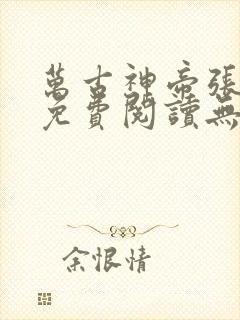 萬古神帝張
免費閱讀無
余恨情